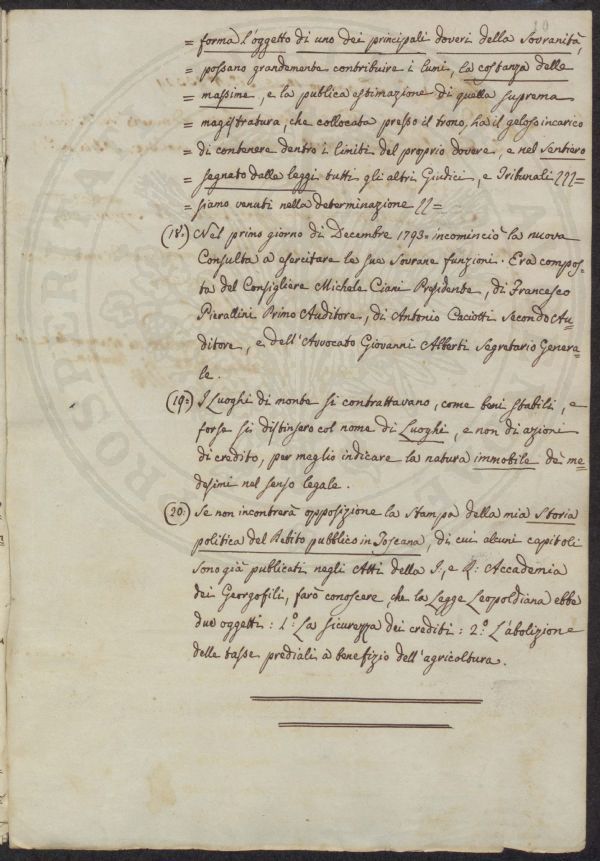 19
= forma l'oggetto di uno dei principali doveri della Sovranità,
= possano grandemente contribuire i lumi, la costanza delle
= massime, e la publica estimazione di quella suprema
= magistratura, che collocata presso il trono, ha il geloso incarico
= di contenere dentro i limiti del proprio dovere, e nel sentiero
= segnato dalle leggi tutti gli altri Giudici, e Tribunali SSS=
= siamo venuti nella determinazione SS=
(18:) Nel primo giorno di Decembre 1793= incominciò la nuova
Consulta a esercitare le sue Sovrane funzioni. Era compos-
ta del Consigliere Michele Ciani Presidente, di Francesco
Pierallini Primo Auditore, di Antonio Caciotti Secondo Au-
ditore, e dell'Avvocato Giovanni Alberti Segretario Genera-
le.
(19:) I Luoghi di monte si contrattavano, come beni stabili, e
forse si distinsero col nome di Luoghi, e non di azioni
di credito, per meglio indicare la natura immobile de' me-
desimi nel senso legale.
(20:) Se non incontrerà opposizione la stampa della mia Storia
politica del Debito pubblico in Toscana, di cui alcuni capitoli
sono già publicati negli Atti della I. e R: Accademia
dei Georgofili, farò conoscere, che la Legge Leopoldiana ebbe
due oggetti: 1.º La sicurezza dei crediti: 2.º L'abolizione
delle tasse prediali a benefizio dell'agricoltura.